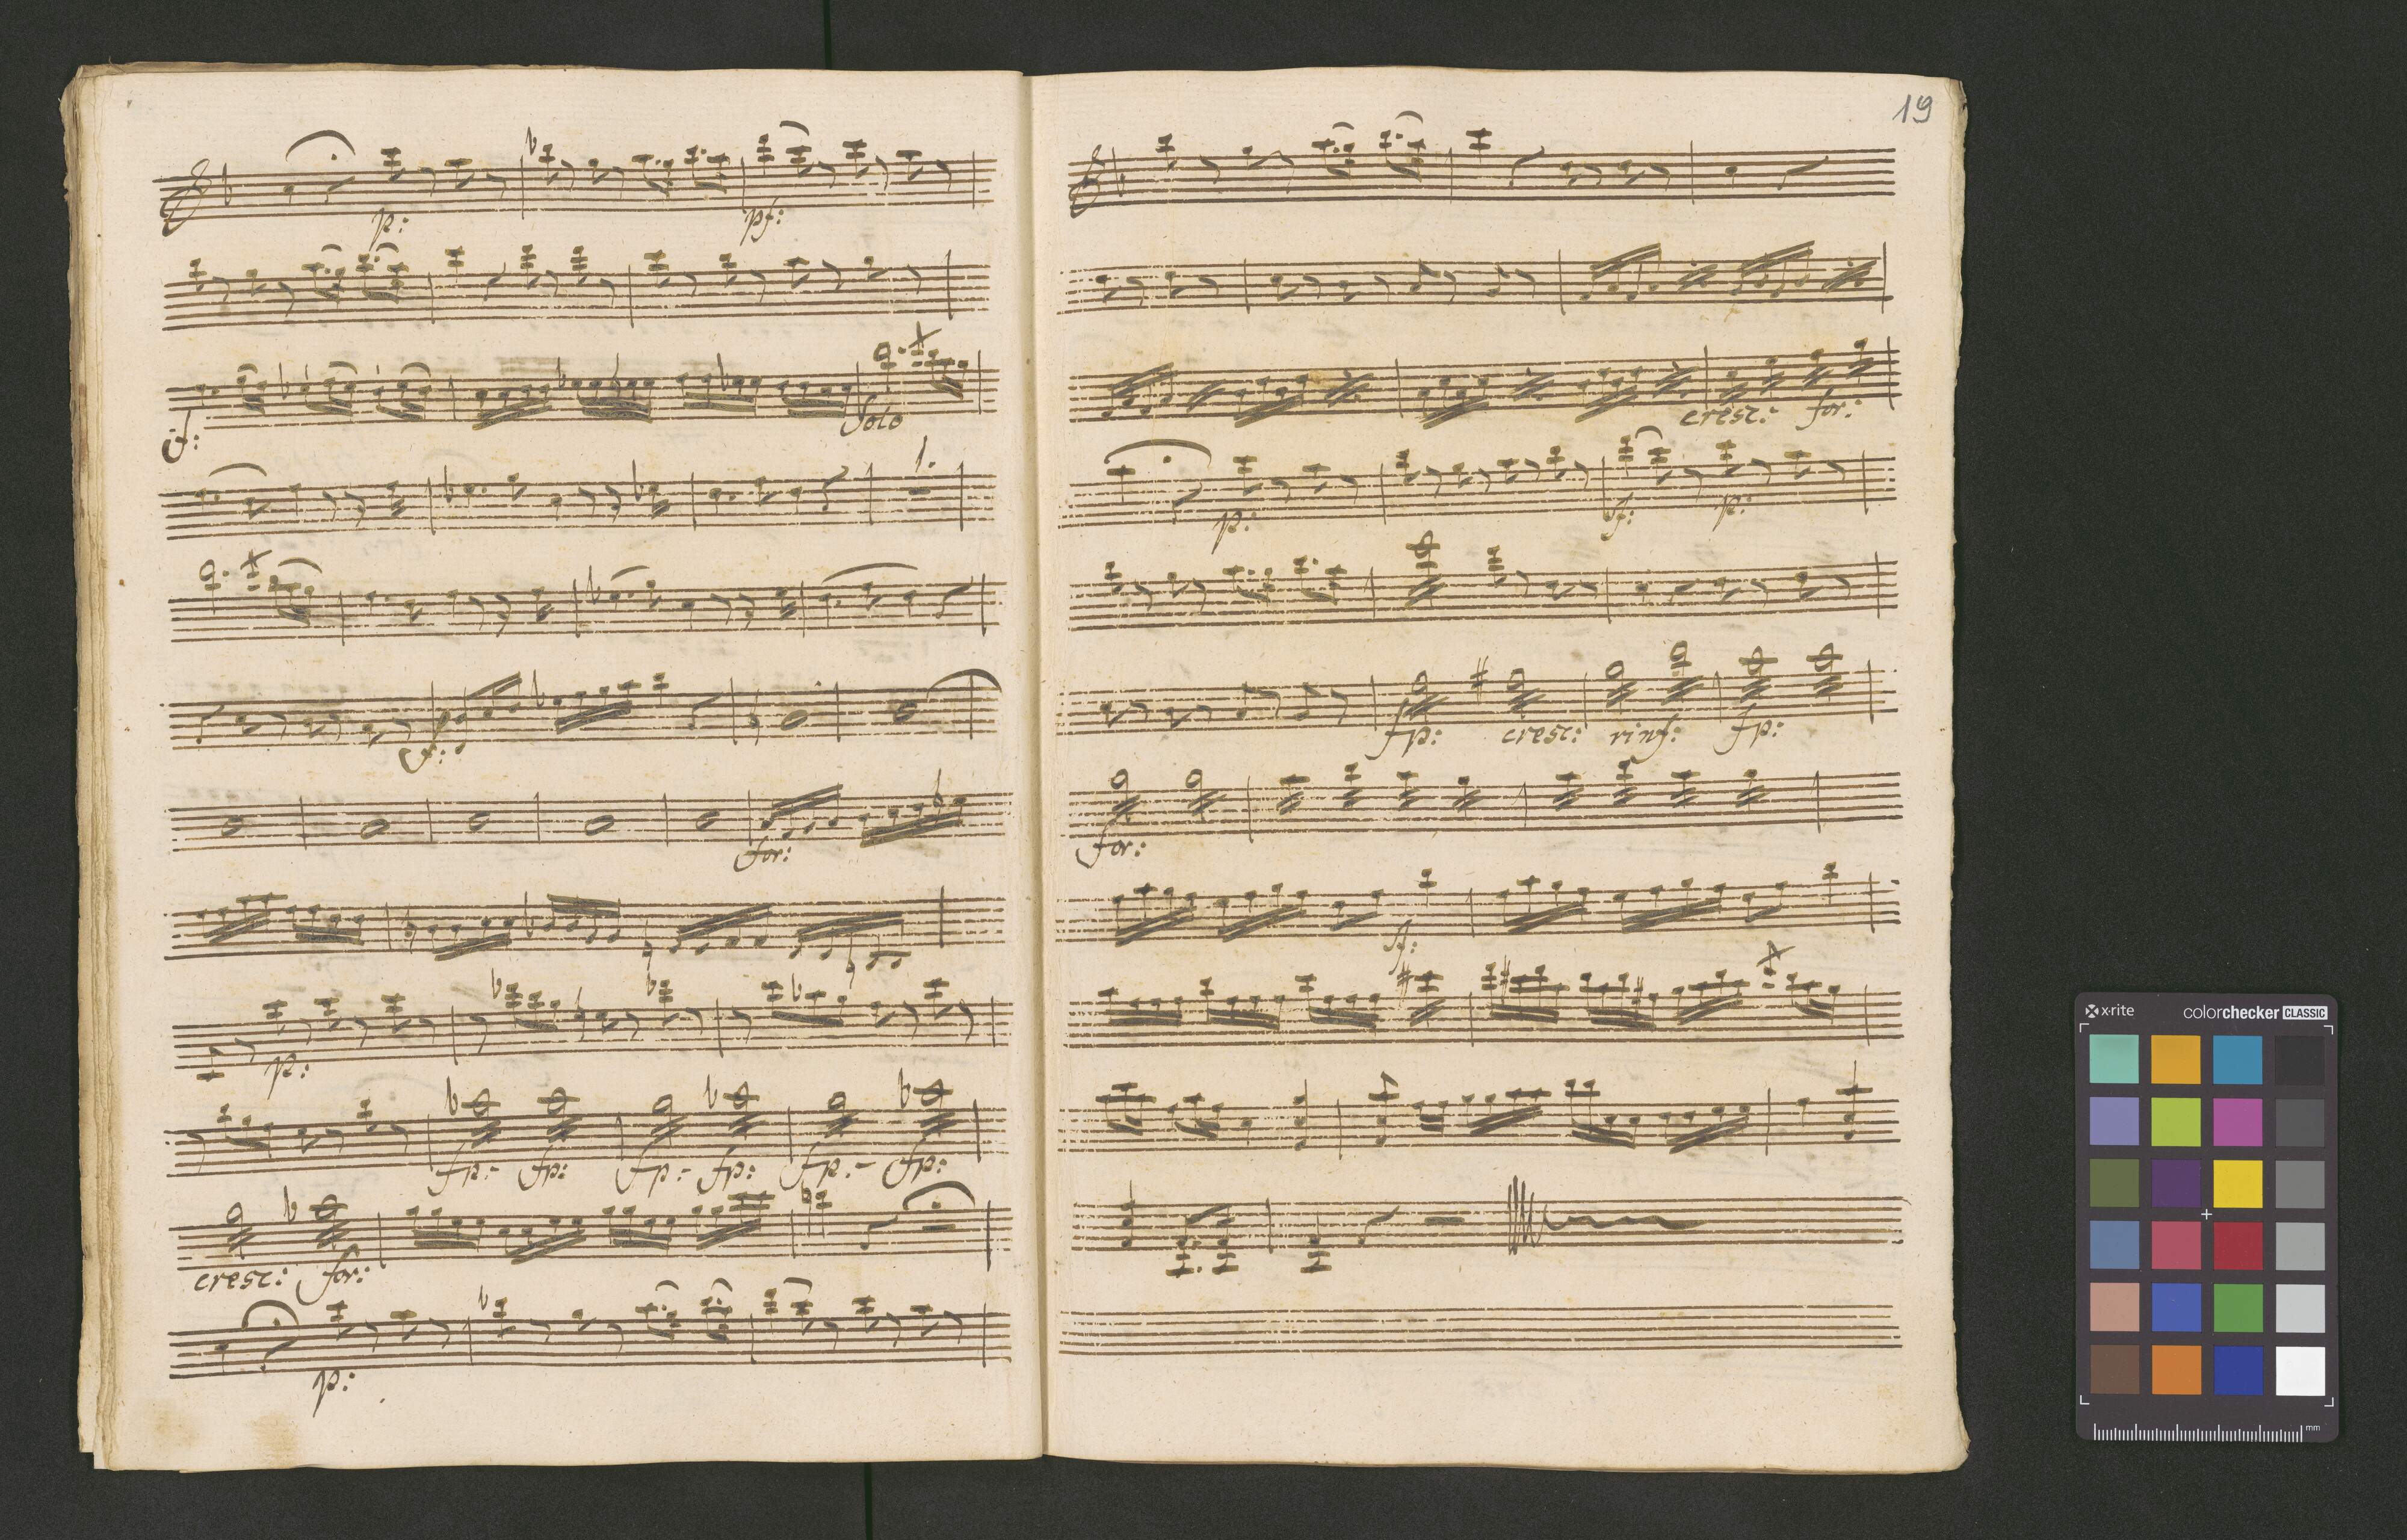 p: pf:
f: Solo
1.
f:
for:
p:
fp:- fp: fp:- fp: fp:- fp:
cresc: for:
p:
19
cresc:- for:-
p: sf: p:
fp: cresc: rinf: fp:
for:
sf:
x-rite colorchecker CLASSIC
mm